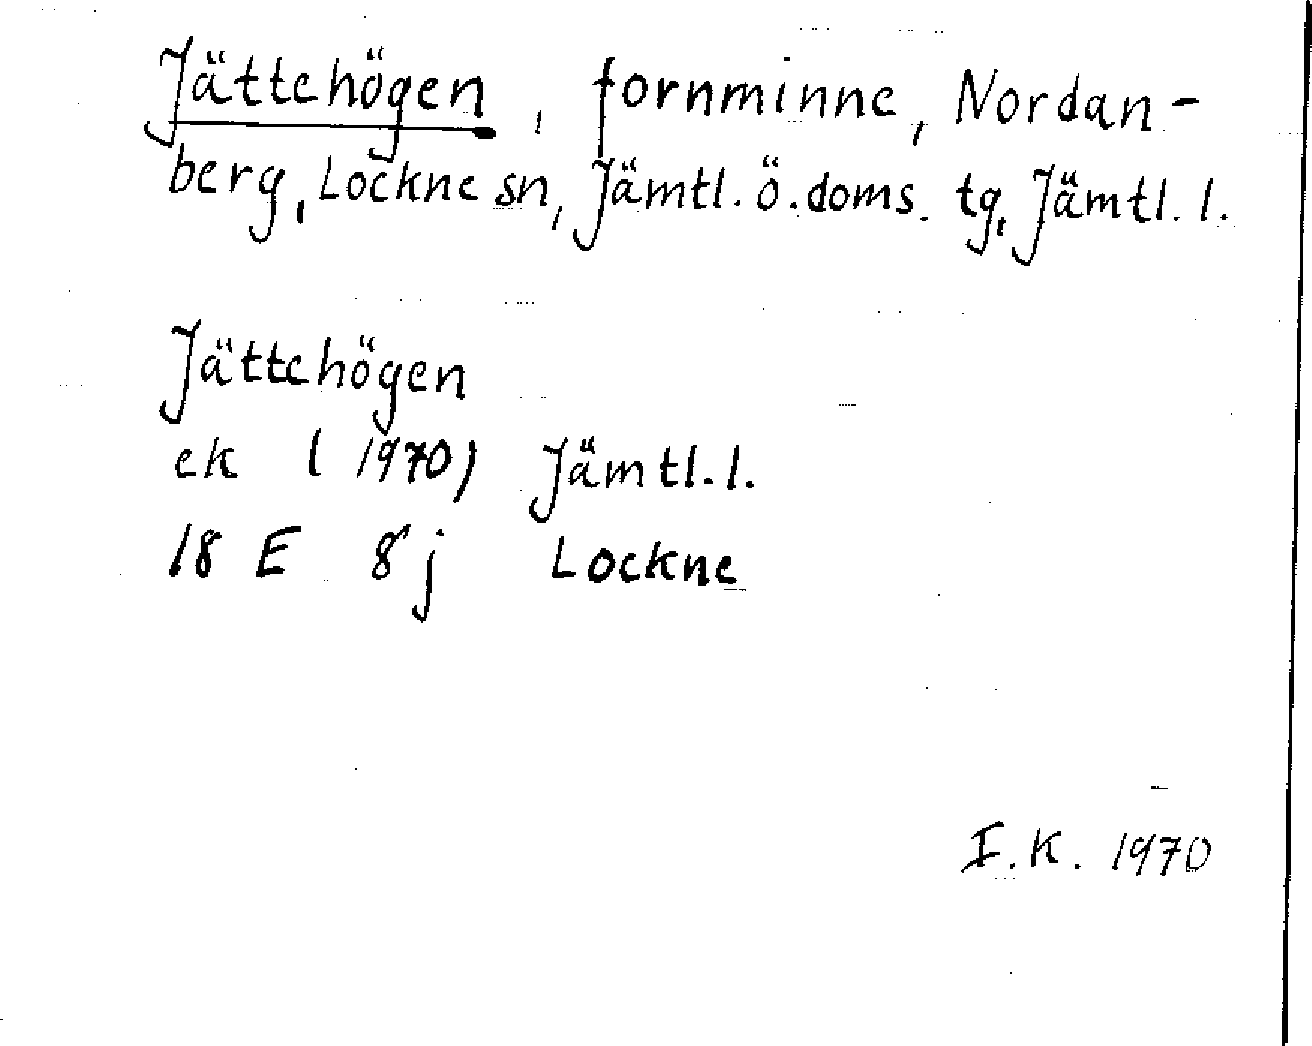 Jättehögen, fornminne, Nordan-
berg, Lockne sn, Jämtl. ö. doms. tg, Jämtl. l.
Jättehögen
ek (1970) Jämtl. l.
18 E 8 j Lockne
I.K. 1970